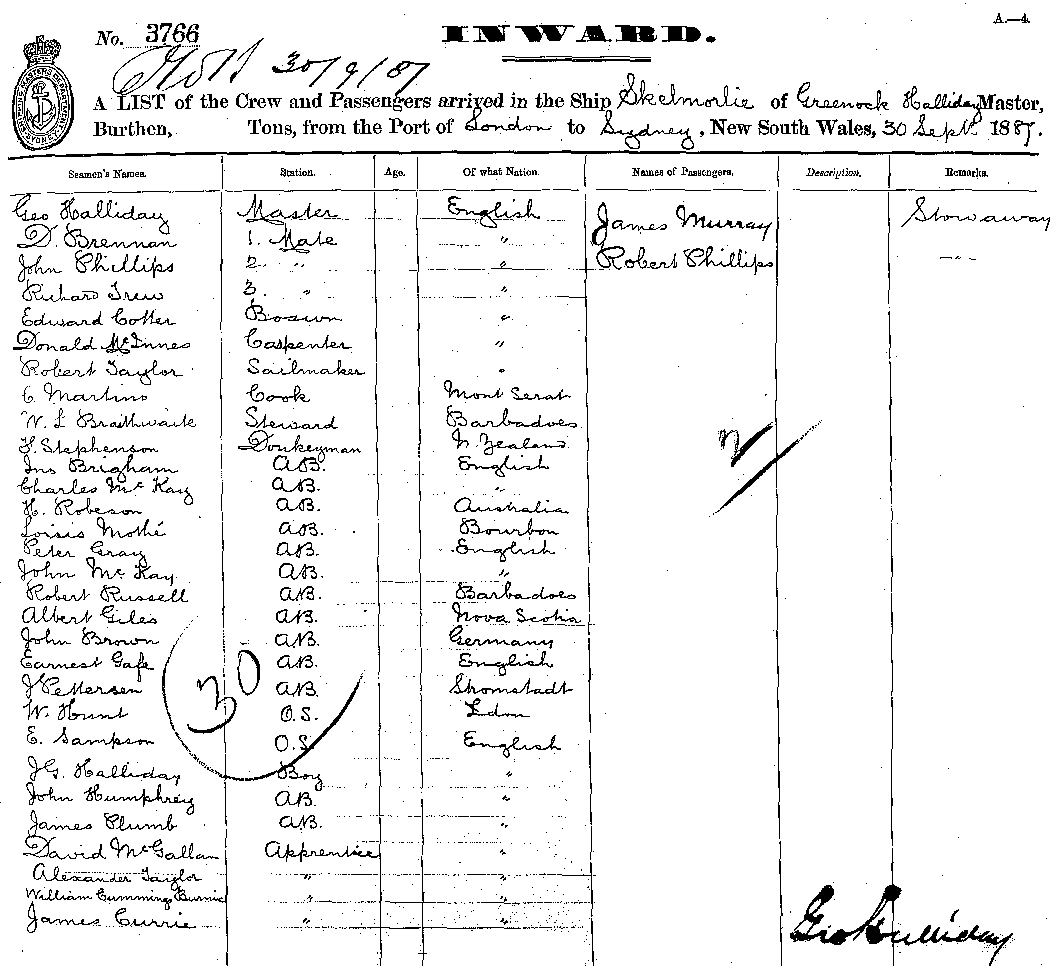 A.—4.
No. 3766
INWARD.
30/9/87
A LIST of the Crew and Passengers arrived in the Ship Skelmorlie of Greenock Halliday Master,
Burthen, Tons, from the Port of London to Sydney, New South Wales, 30 Sept. 1887.
Seamen's Names. Station. Age. Of what Nation. Names of Passengers. Description. Remarks.
Geo Halliday Master English James Murray Stowaway
D. Brennan 1. Mate "
John Phillips 2. " " Robert Phillips - " -
Richard Trew 3. " "
Edward Cotter Bosun "
Donald McInnes Carpenter "
Robert Taylor Sailmaker "
C Martins Cook Mont Serat
W. L Braithwaite Steward Barbadoes
F. Stephenson Donkeyman N. Zealand
Jno Brigham A.B. English
Charles McKay A.B. "
H. Robeson A.B. Australia
Loisis Mothé A.B. Bourbon
Peter Gray A.B. English
John McKay A.B. "
Robert Russell A.B. Barbadoes
Albert Giles A.B. Nova Scotia
John Brown A.B. Germany
Earnest Gafe A.B. English
J Pettersen A.B. Stromstadt
W. Hunt O.S. Ldon
E. Sampson O.S. English
J.G. Halliday Boy "
John Humphrey A.B. "
James Plumb A.B. "
David McGallan Apprentice "
Alexander Taylor " "
William Cummings Burnie " "
James Currie " "
30
2/
Geo Halliday